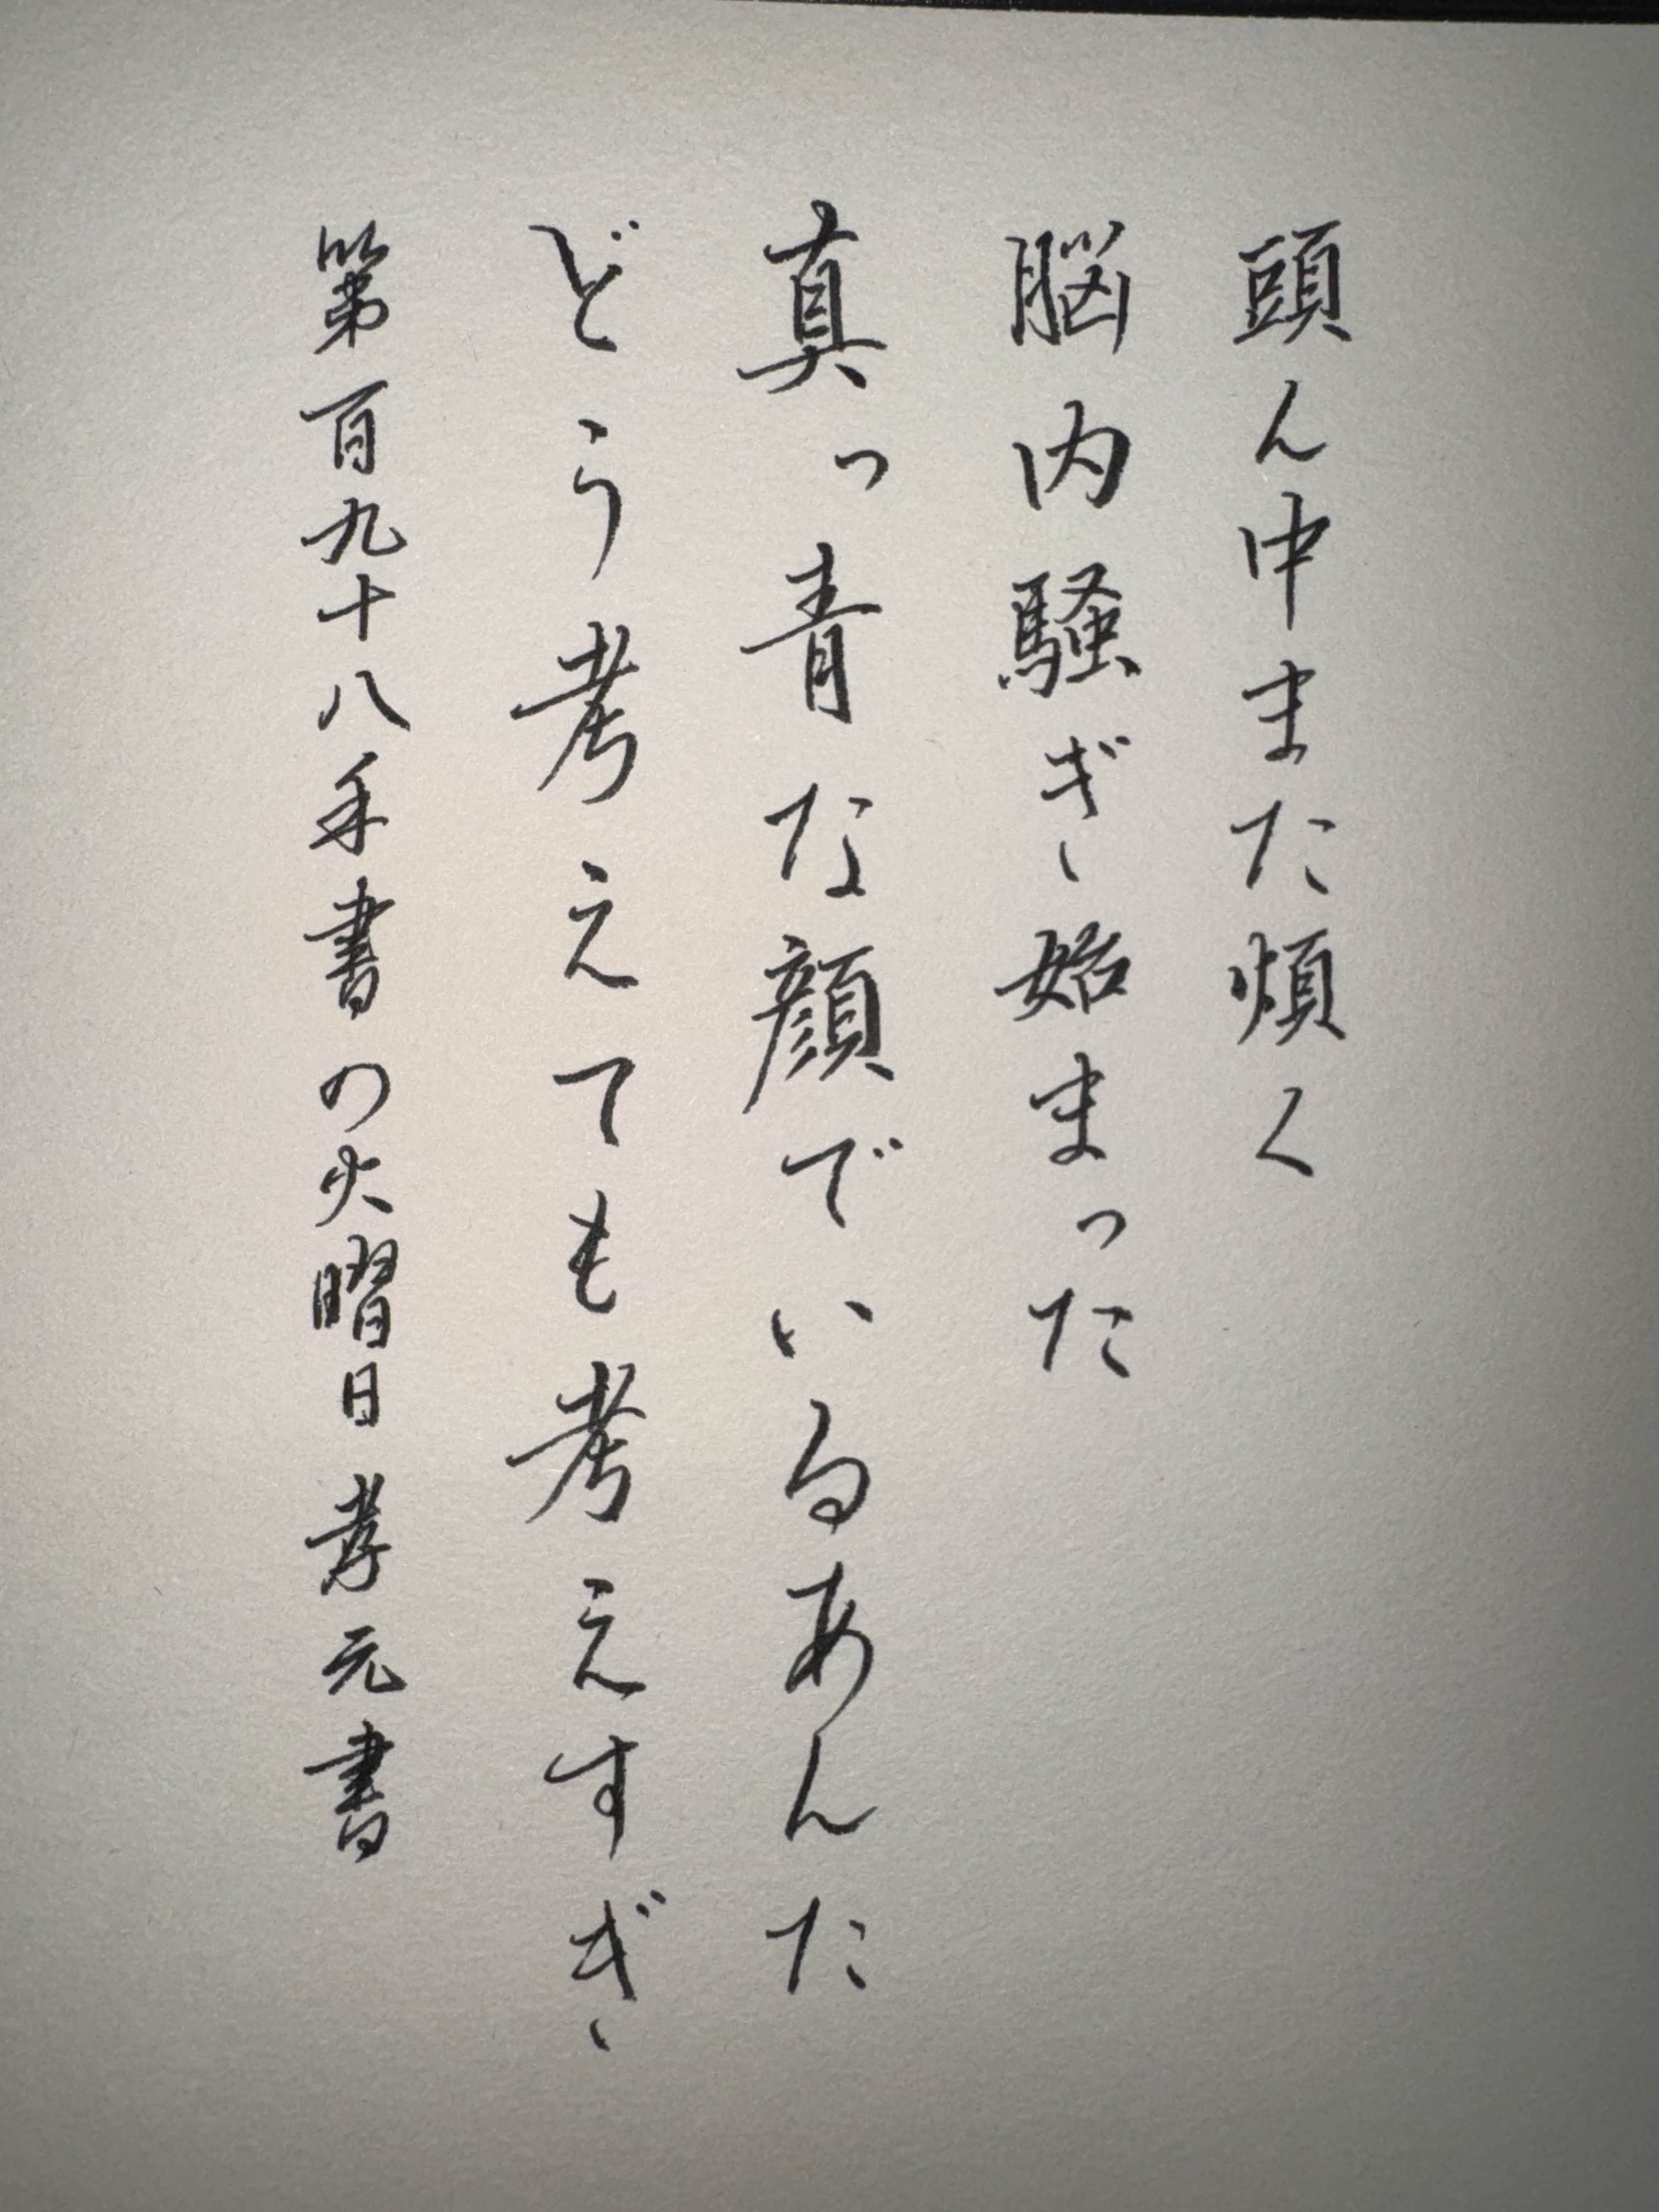 頭ん中また煩く
脳内騒ぎ始まった
真っ青な顔でいるあんた
どう考えても考えすぎ
第百九十八手書の火曜日 孝元書